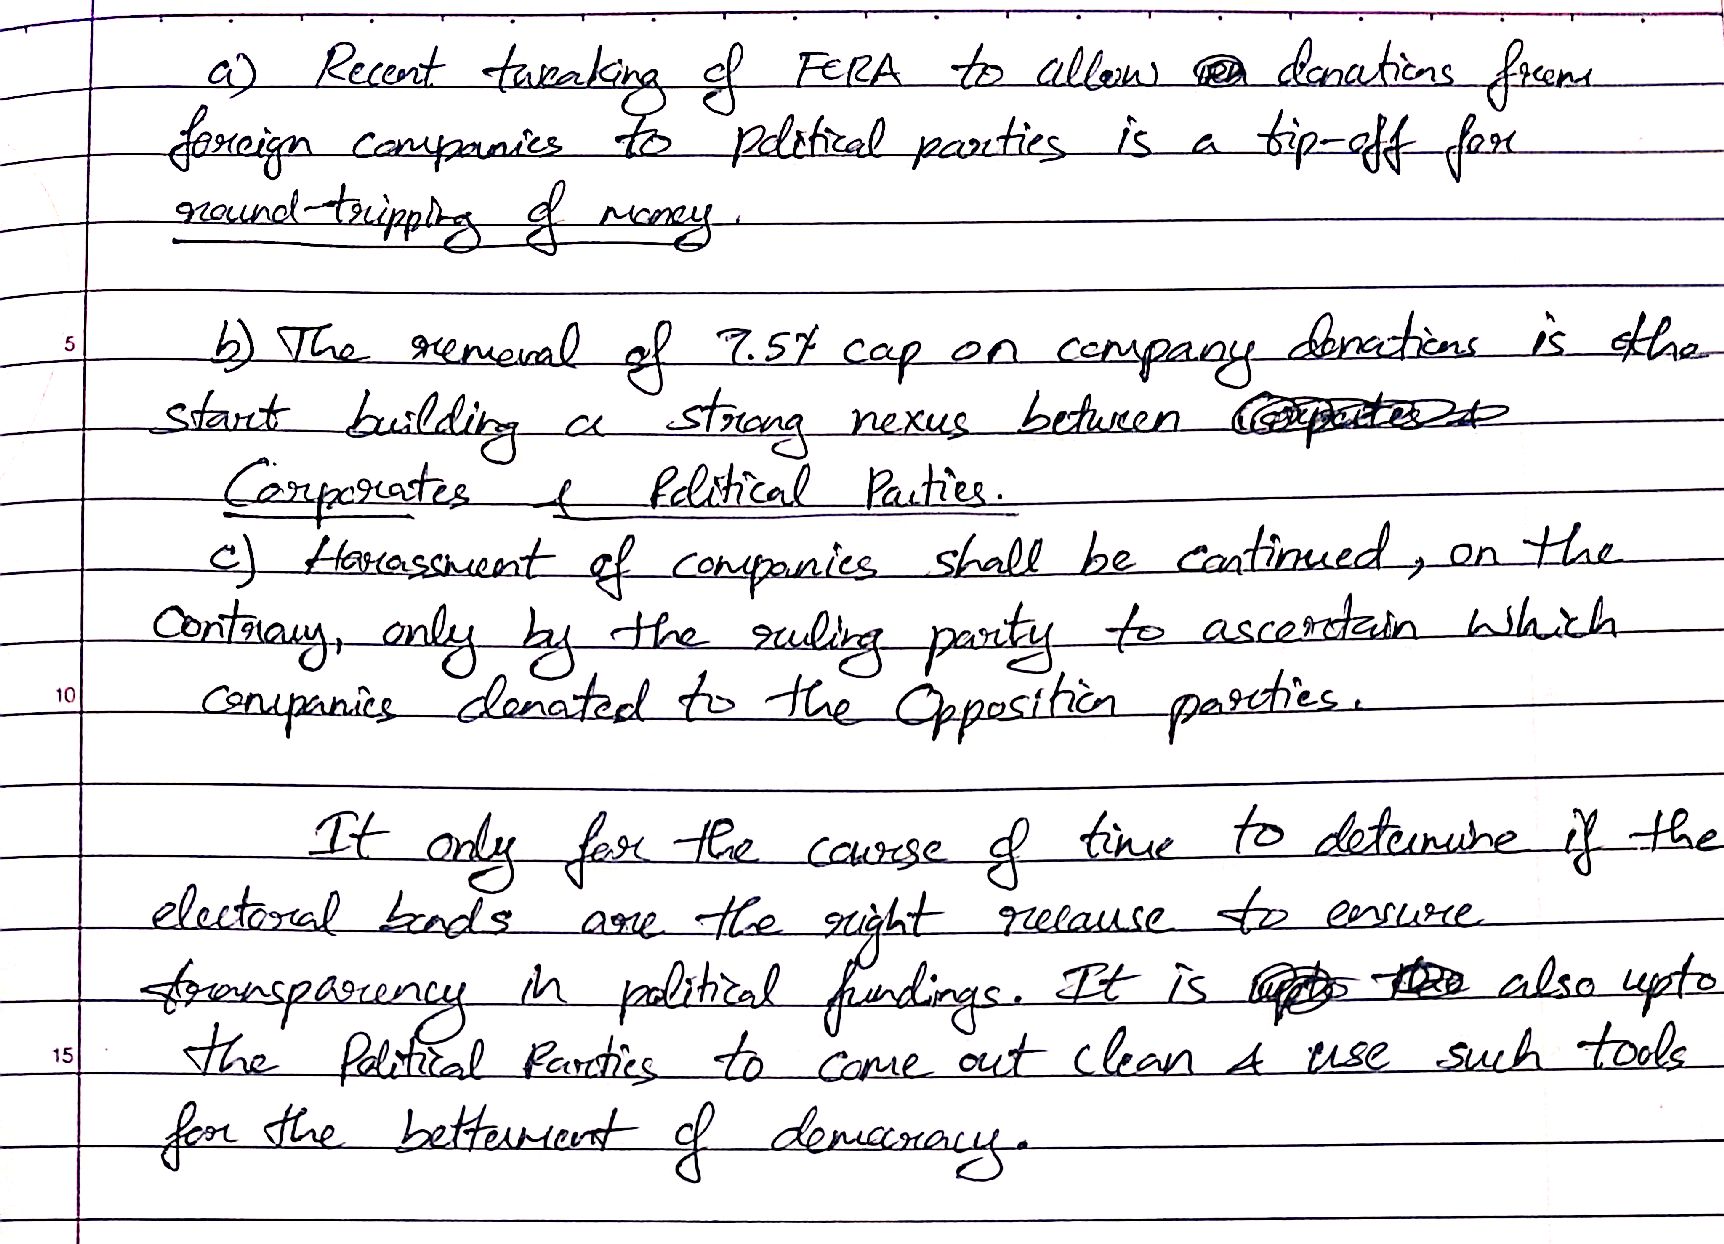 a) Recent tweaking of FCRA to allow donations from
foreign companies to political parties is a tip-off for
round-tripping of money.
5 b) The removal of 7.5% cap on company donations is the
start building a strong nexus between
Corporates & Political Parties.
c) Harassment of companies shall be continued, on the
Contrary, only by the ruling party to ascertain which
10 companies donated to the Opposition parties.
It only for the course of time to determine if the
electoral bonds are the right recause to ensure
transparency in political fundings. It is also upto
15 the Political Parties to come out clean & use such tools
for the betterment of democracy.